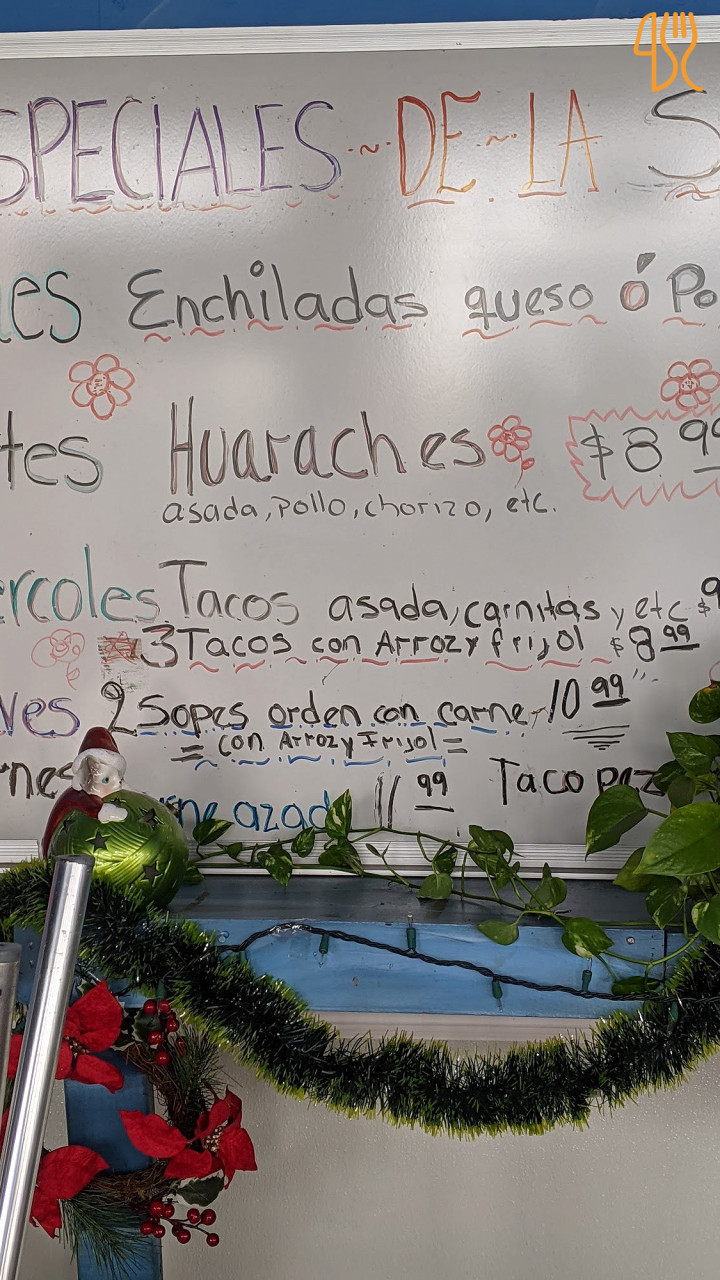 SPECIALES ~ DE ~ LA S
es Enchiladas queso ó Po
tes Huaraches $8 99
asada, pollo, chorizo, etc.
ercoles Tacos asada, carnitas y etc $9
3 Tacos con Arroz y frijol $8 99
ves 2 Sopes orden con carne - 10 99
= con Arroz y Frijol =
rnes ne azad 11 99 Taco